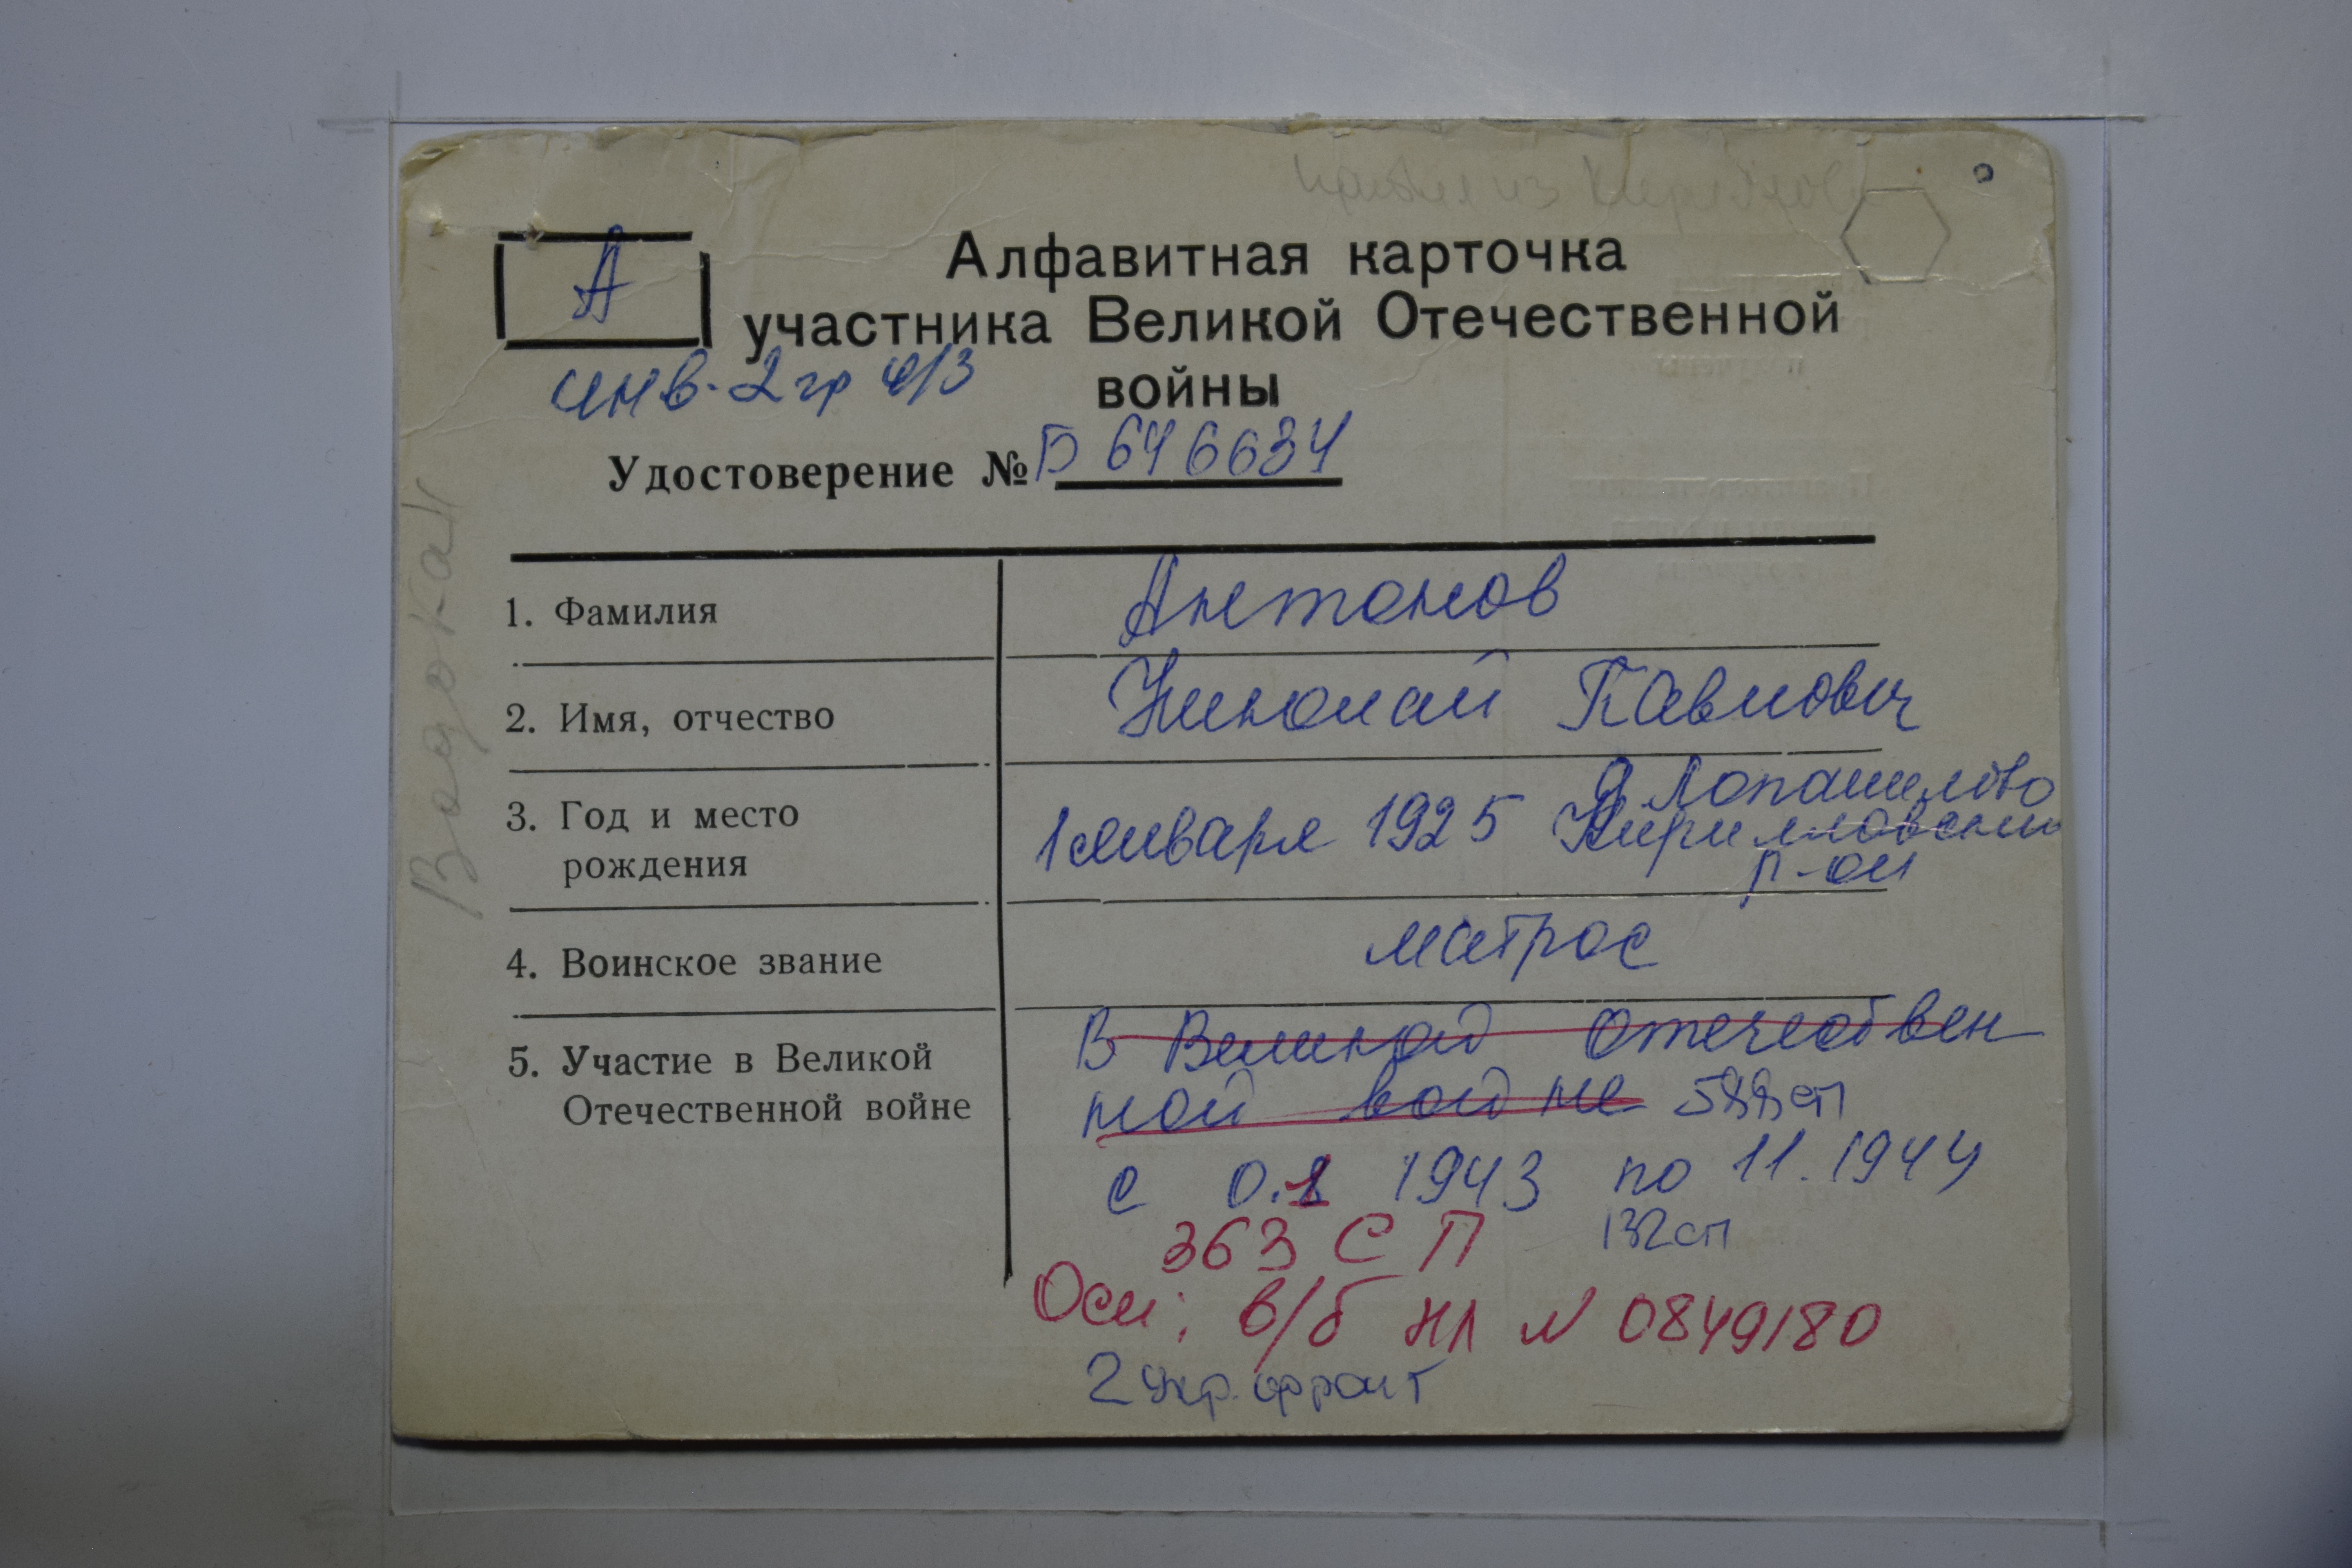 А
Алфавитная карточка
участника Великой Отечественной
войны
инв. 2 гр о/з
Удостоверение № Б 646634
1. Фамилия
Антонов
2. Имя, отчество
Николай Павлович
3. Год и место
рождения
1 января 1925
Кирилловский
р-он
4. Воинское звание
матрос
5. Участие в Великой
Отечественной войне
В Великой Отечествен
ной войне 588 сп
с 0.1 1943 по 11.1944
363 СП 132 сп
Осн: в/б НЛ N 0849180
2 укр. фронт
Водокан